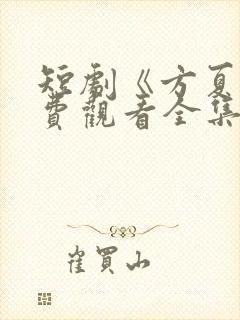 短劇《方夏
費觀看全集
崔買山